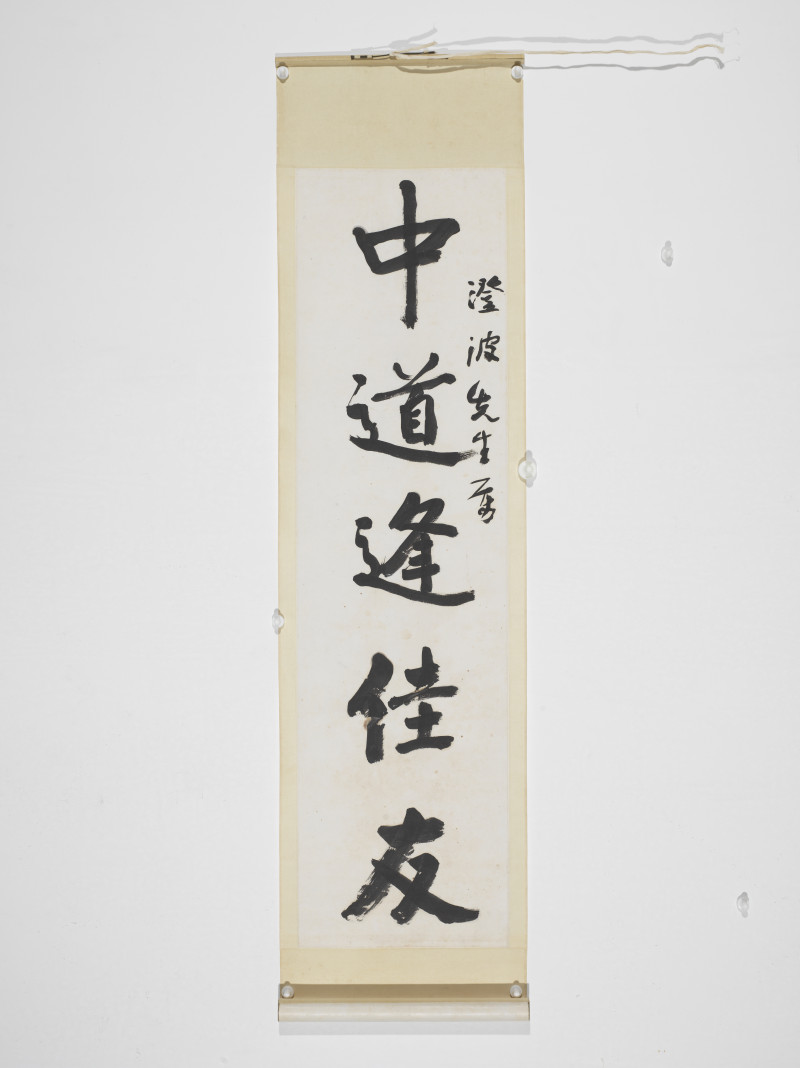 澄波先生属
中道逢佳友